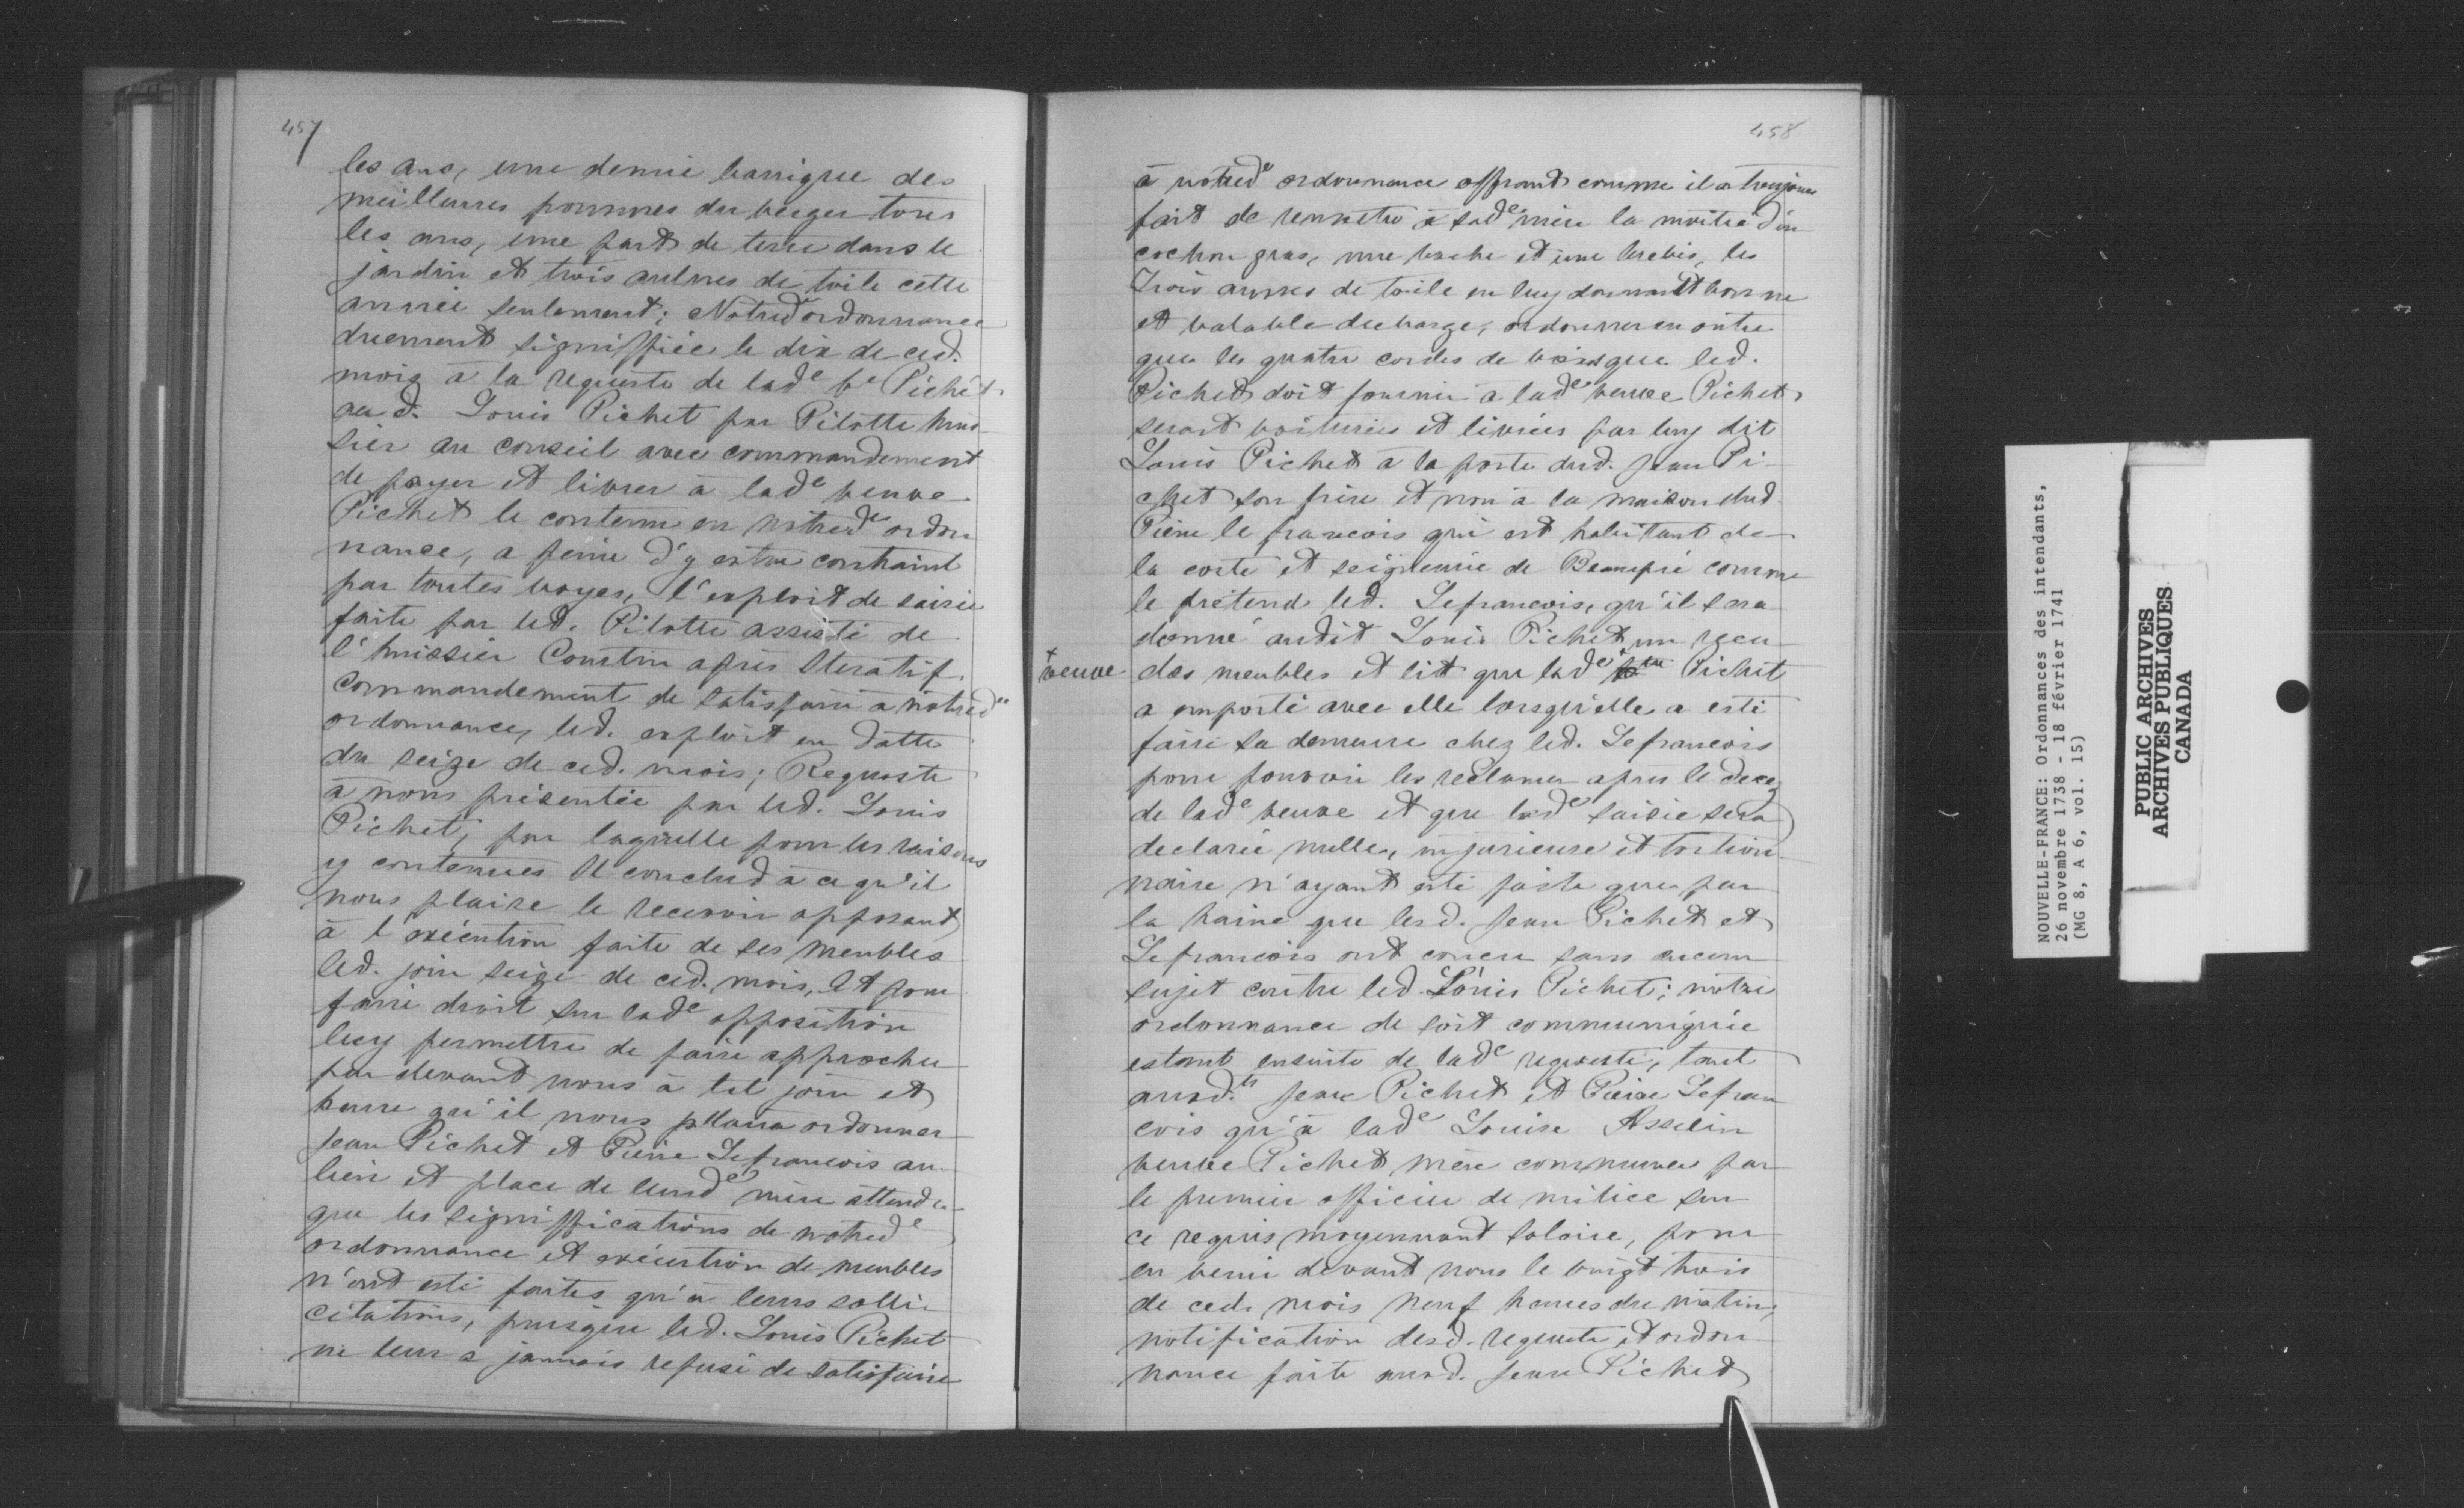 457
les ans, une demie barrique des
meilleures pommes du verger tous
les ans, une part de terre dans le
jardin et trois aulnes de toile cette
année seulement; Notred. ordonnance
duement signiffiée le dix de ced.
mois à la requeste de lade ve Pichet
aud. Louis Pichet par Pilotte huis
sier au conseil avec commandement
de payer et livrer à lade veuve
Pichet le contenu en notrede ordon
nance, a peine d'y estre contraint
par toutes voyes, l'exploit de saisie
faite par led. Pilotte assisté de
l'huissier Courtin après Iteratif
commandement de satisfaire a notrede
ordonnance, led. exploit en datte
du seize de ced. mois; Requeste
à nous présentée par led. Louis
Pichet, par laquelle pour les raisons
y contenues Il conclud à ce qu'il
nous plaise le recevoir opposant
à l'exécution faite de ses meubles
led. jour seize de ced. mois, Et pour
faire droit sur lade opposition
luy permettre de faire approcher
par devant nous à tel jour et
heure qu'il nous plaira ordonner
Jean Pichet et Pierre Lefrancois au
lieu et place de leurde mère attendu
que les signiffications de notrede
ordonnance et exécution de meubles
n'ont esté faites qu'à leurs solli
citations, puisque led. Louis Pichet
ne leur a jamais refusé de satisfaire
458
à notrede ordonnance offrant comme il a toujours
fait de remettre à sade mère la moitié d'un
cochon gras, une vache et une brebis, les
Trois aunes de toile en luy donnant bonne
et valable decharge, ordonner en outre
que les quatre cordes de bois que led.
Pichet doit fournir à lade veuve Pichet
seront voiturées et livrées par luy dit
Louis Pichet à la porte dud. Jean Pi-
chet son frère et non à la maison dud.
Pierre le francois qui est habitant de
la coste et seigneurie de Beaupré comme
le prétend led. Lefrancois, qu'il sera
donné audit Louis Pichet un recu
+ veuve
des meubles et lit que lade + Pichet
a emporté avec elle lorsqu'elle a esté
faire sa demeure chez led. Lefrancois
pour pouvoir les reclamer apres le decez
de lade veuve et que lade saisie sera
declarée nulle, injurieuse et tortion
naire n'ayant esté faite que par
la haine que lesd. Jean Pichet et
Lefrancois ont concu sans aucun
sujet contre led. Louis Pichet; notre
ordonnance de soit communiquée
estant ensuite de lade requeste, tant
ausd.ts Jean Pichet et Pierre Lefran
cois qu'à lade Louise Asselin
veuve Pichet mère commune par
le premier officier de milice sur
ce requis moyennant salaire, pour
en venir devant nous le vingt trois
de ced. mois neuf heures du matin;
notification desd. requeste et ordon
nance faite ausd. Jean Pichet
NOUVELLE-FRANCE: Ordonnances des intendants,
26 novembre 1738 - 18 février 1741
(MG 8, A 6, vol. 15)
PUBLIC ARCHIVES
ARCHIVES PUBLIQUES
CANADA